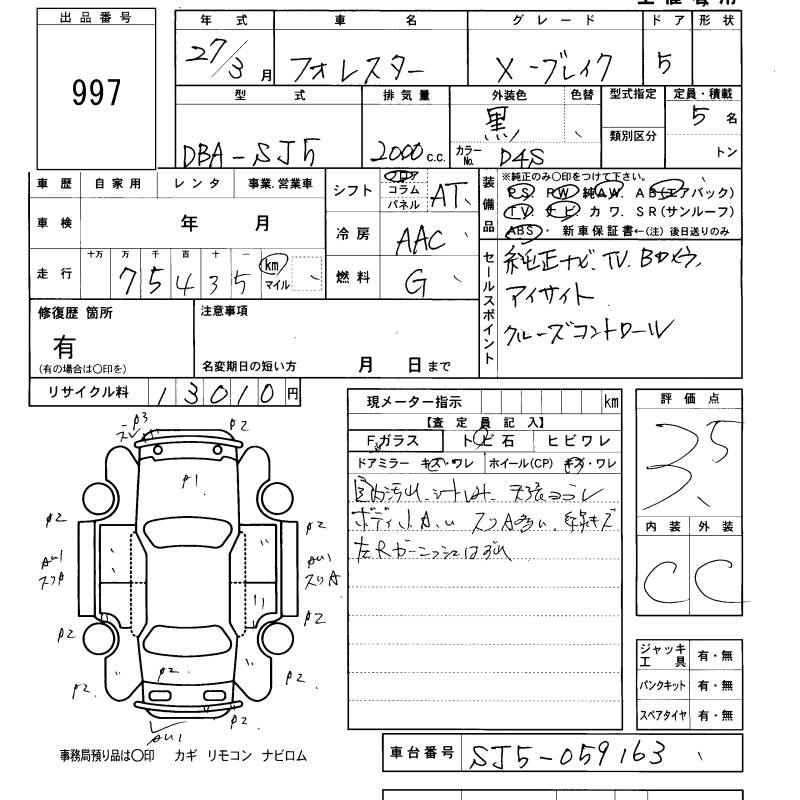 出品番号
997
年式 車名 グレード ドア 形状
27/3月 フォレスター X-ブレイク 5
型式 排気量 外装色 色替 型式指定 定員・積載
類別区分
DBA-SJ5 2000c.c. 黒 カラーNo. D4S 5名
トン
車歴 自家用 レンタ 事業.営業車
車検 年 月
走行 十万 万 千 百 十 一
75435 km マイル
シフト フロア コラム パネル AT
冷房 AAC
燃料 G
装備品
※純正のみ○印をつけて下さい。
P.S. P.W 純A.W. A.B(エアバック)
T.V. ナビ カワ. S.R(サンルーフ)
ABS・ 新車保証書←(注) 後日送りのみ
セールスポイント
純正ナビ、TV、Bカメラ
アイサイト
クルーズコントロール
修復歴 箇所
有
(有の場合は○印を)
注意事項
名変期日の短い方 月 日まで
リサイクル料 13010円
現メーター指示 km
【査定員記入】
F.ガラス トビ石 ヒビワレ
ドアミラー キズ・ワレ ホイール(CP) キズ・ワレ
ボディ小A.U スリA多い 線キズ
左Rガーニッシュはずれ
評価点
3.5
内装 外装
C C
ジャッキ工具 有・無
パンクキット 有・無
スペアタイヤ 有・無
P3
スレ P2
P1
P2 P2
AU1 AU1
スリA スリA
P2 P2
P2 P2 P2
P2
AU1
事務局預り品は○印 カギ リモコン ナビロム
車台番号 SJ5-059163